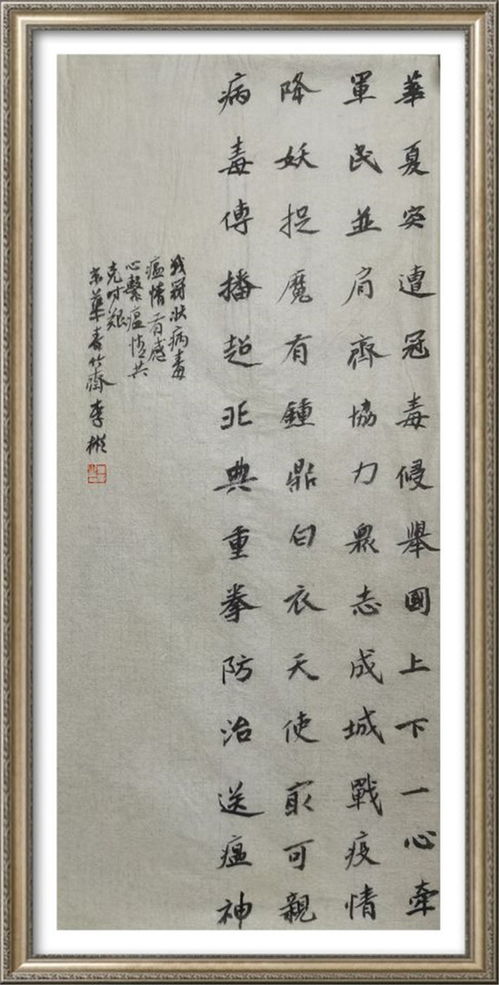 華夏突遭冠毒侵舉國上下一心牽
軍民並肩齊協力眾志成城戰疫情
降妖捉魔有鍾鼎白衣天使最可親
病毒傳播超非典重拳防治送瘟神
战冠狀病毒
瘟情有感
心繫瘟情共
克时艱
京華竹齋李彬